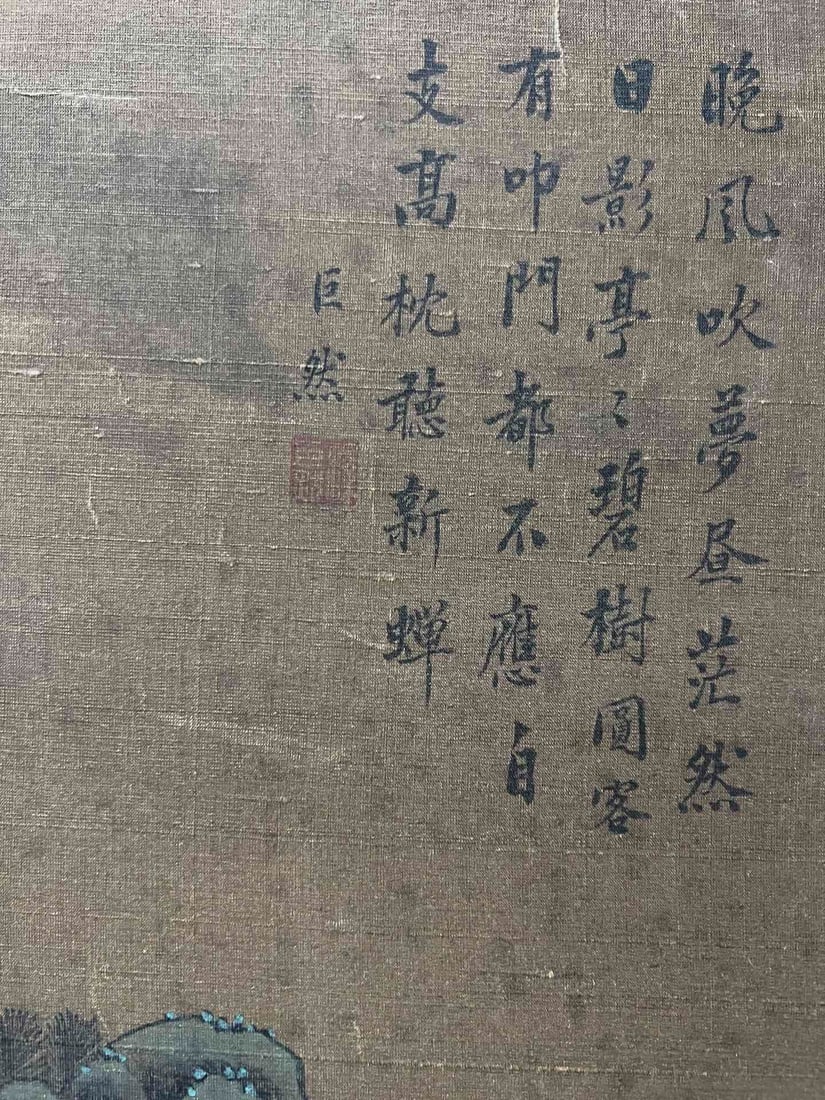 晚風吹夢昼茫然
日影亭〻碧樹圓客
有叩門都不應自
支高枕聽新蟬
巨然